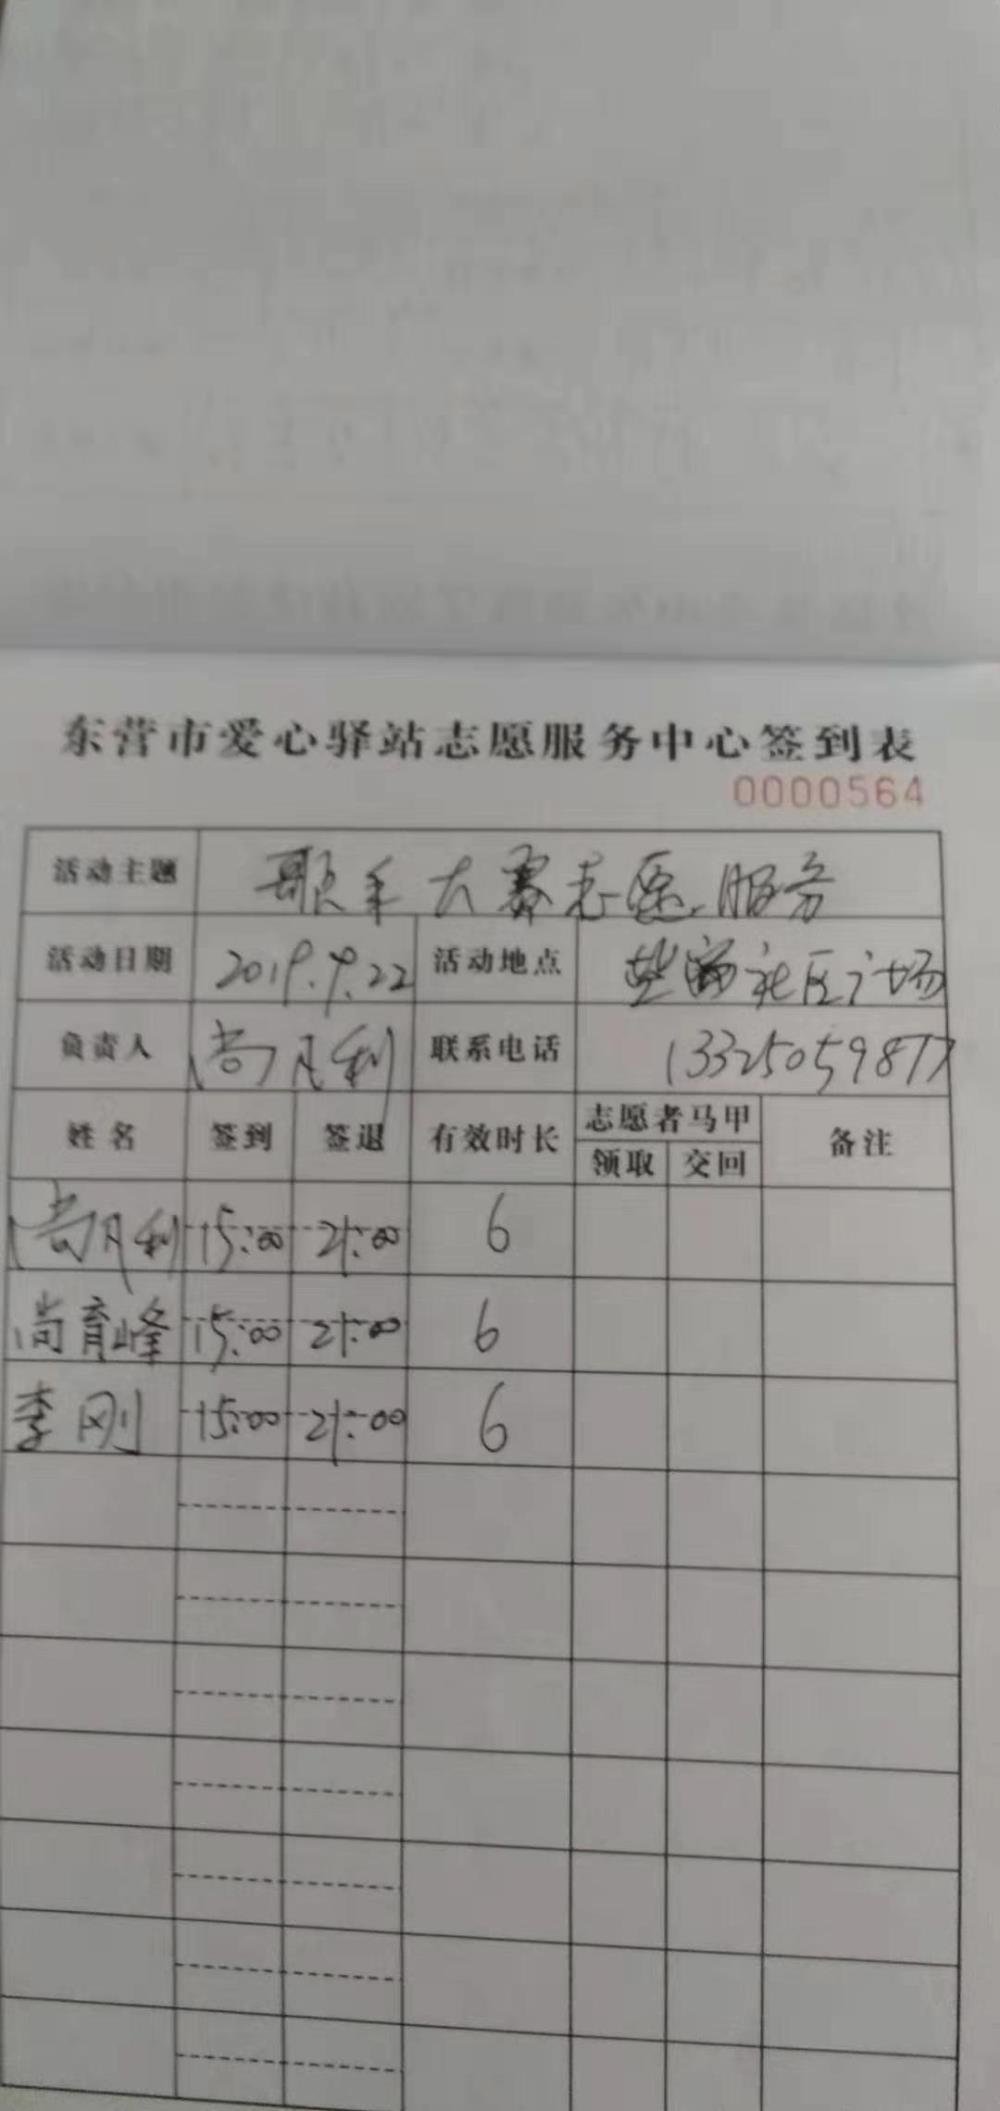 东营市爱心驿站志愿服务中心签到表
0000564
活动主题 歌手大赛志愿服务
活动日期 2019.9.22 活动地点 社区广场
负责人 尚凡利 联系电话 13325059877
姓名 签到 签退 有效时长 志愿者马甲 备注
领取 交回
尚凡利 15:00 21:00 6
尚育峰 15:00 21:00 6
李刚 15:00 21:00 6